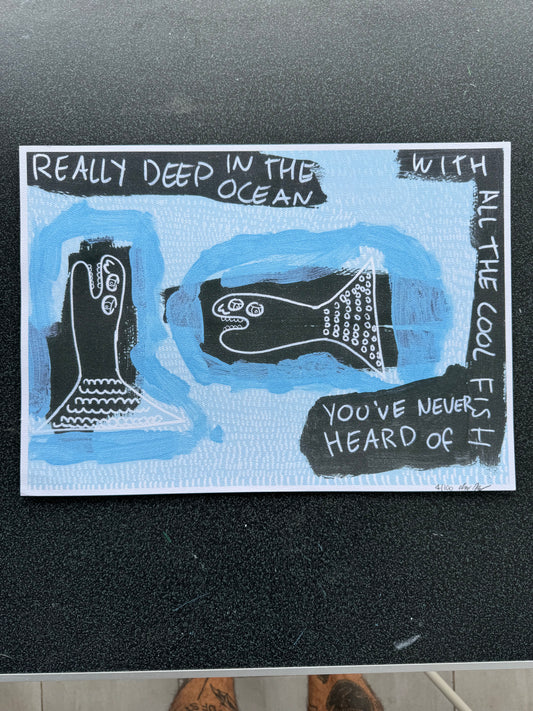 REALLY DEEP IN THE
OCEAN
WITH
ALL THE COOL FISH
YOU'VE NEVER
HEARD OF
4/100